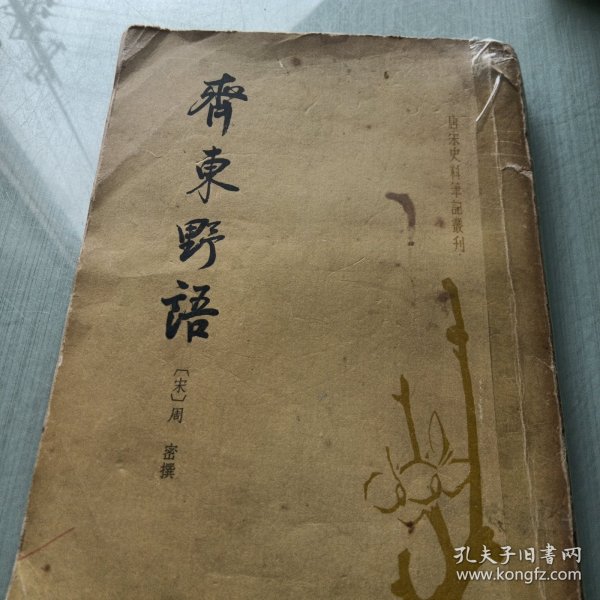 齊東野語
〔宋〕周 密撰
唐宋史料筆記叢刊
孔夫子旧書网
www.kongfz.com